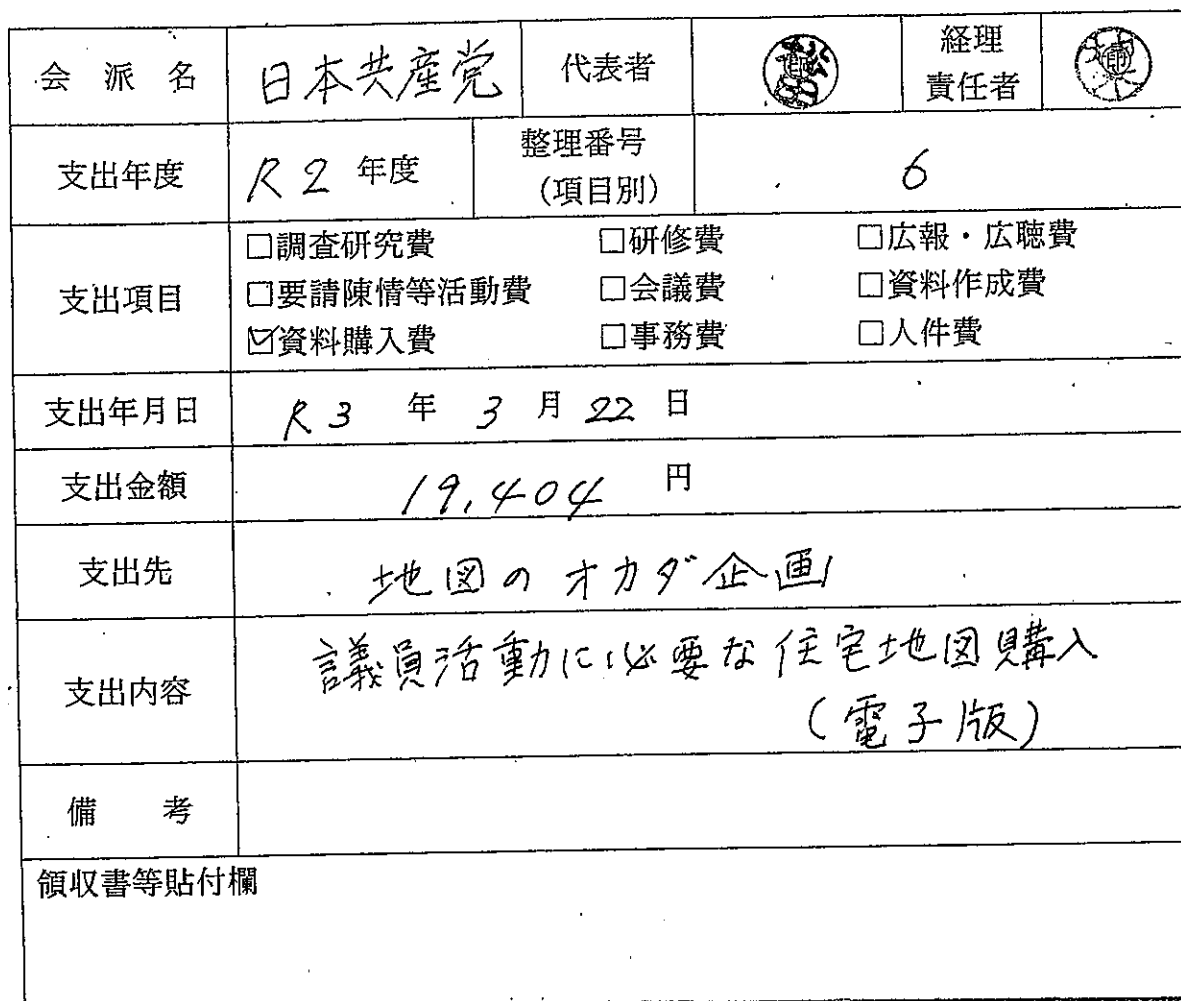 会派名 日本共産党 代表者 経理責任者
支出年度 R2年度 整理番号(項目別) 6
支出項目 □調査研究費 □研修費 □広報・広聴費
□要請陳情等活動費 □会議費 □資料作成費
☑資料購入費 □事務費 □人件費
支出年月日 R3年3月22日
支出金額 19,404円
支出先 地図のオカダ企画
支出内容 議員活動に必要な住宅地図購入
(電子版)
備考
領収書等貼付欄